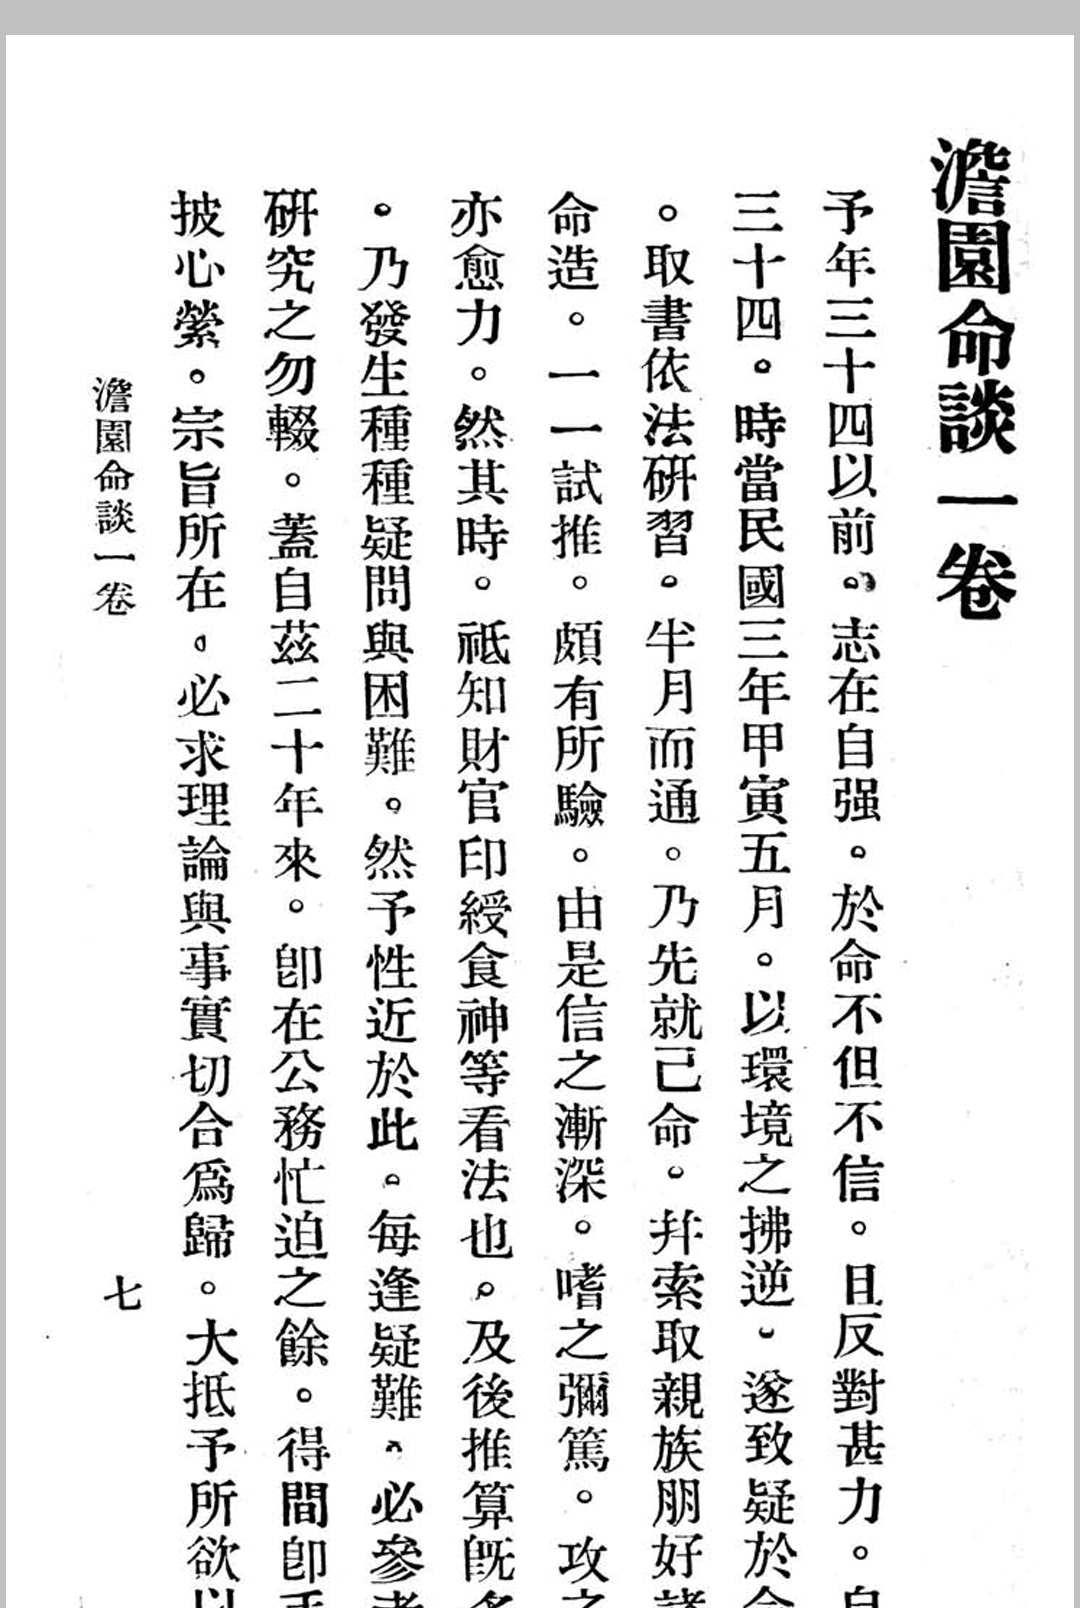 澹園命談一卷
予年三十四以前。志在自强。於命不但不信。且反對甚力。自
三十四。時當民國三年甲寅五月。以環境之拂逆。遂致疑於命
。取書依法研習。半月而通。乃先就己命。幷索取親族朋好諸
命造。一一試推。頗有所驗。由是信之漸深。嗜之彌篤。攻之
亦愈力。然其時。祗知財官印綬食神等看法也。及後推算既多
。乃發生種種疑問與困難。然予性近於此。每逢疑難。必參考
研究之勿輟。蓋自茲二十年來。卽在公務忙迫之餘。得間卽手
披心縈。宗旨所在。必求理論與事實切合爲歸。大抵予所欲以
澹園命談一卷
七